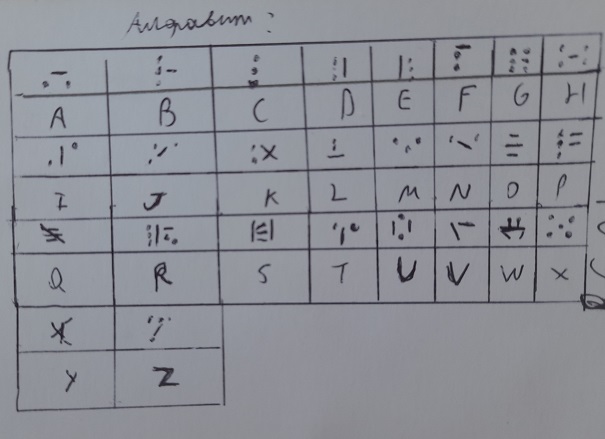 Алфавит:
A B C D E F G H
I J K L M N O P
Q R S T U V W X
Y Z